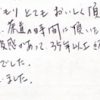 もり とても おいしく頂
茶道の時間に頂いた
感があって 35年以上
でした。
ました。